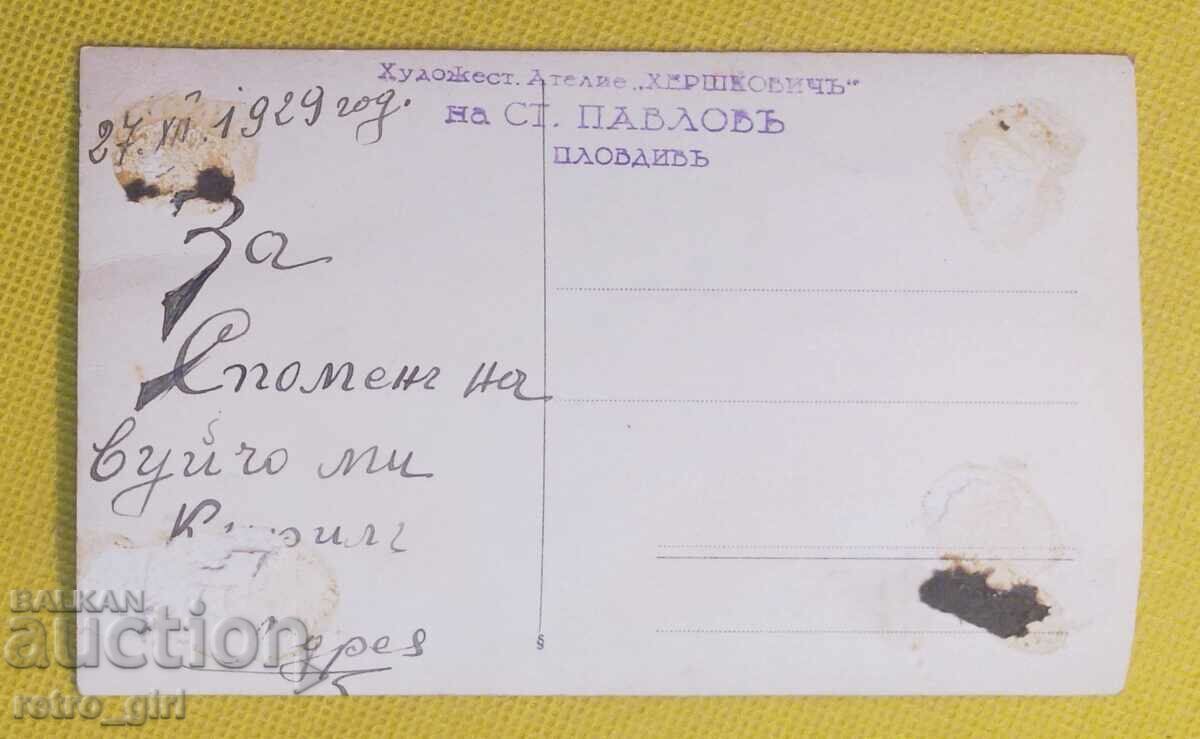 Художест. Ателие „ХЕРШКОВИЧЪ“
на СТ. ПАВЛОВЪ
ПЛОВДИВЪ
27. XII. 1929 год.
За
Спомен на
вуйчо ми
§
BALKAN
auction
retro_girl